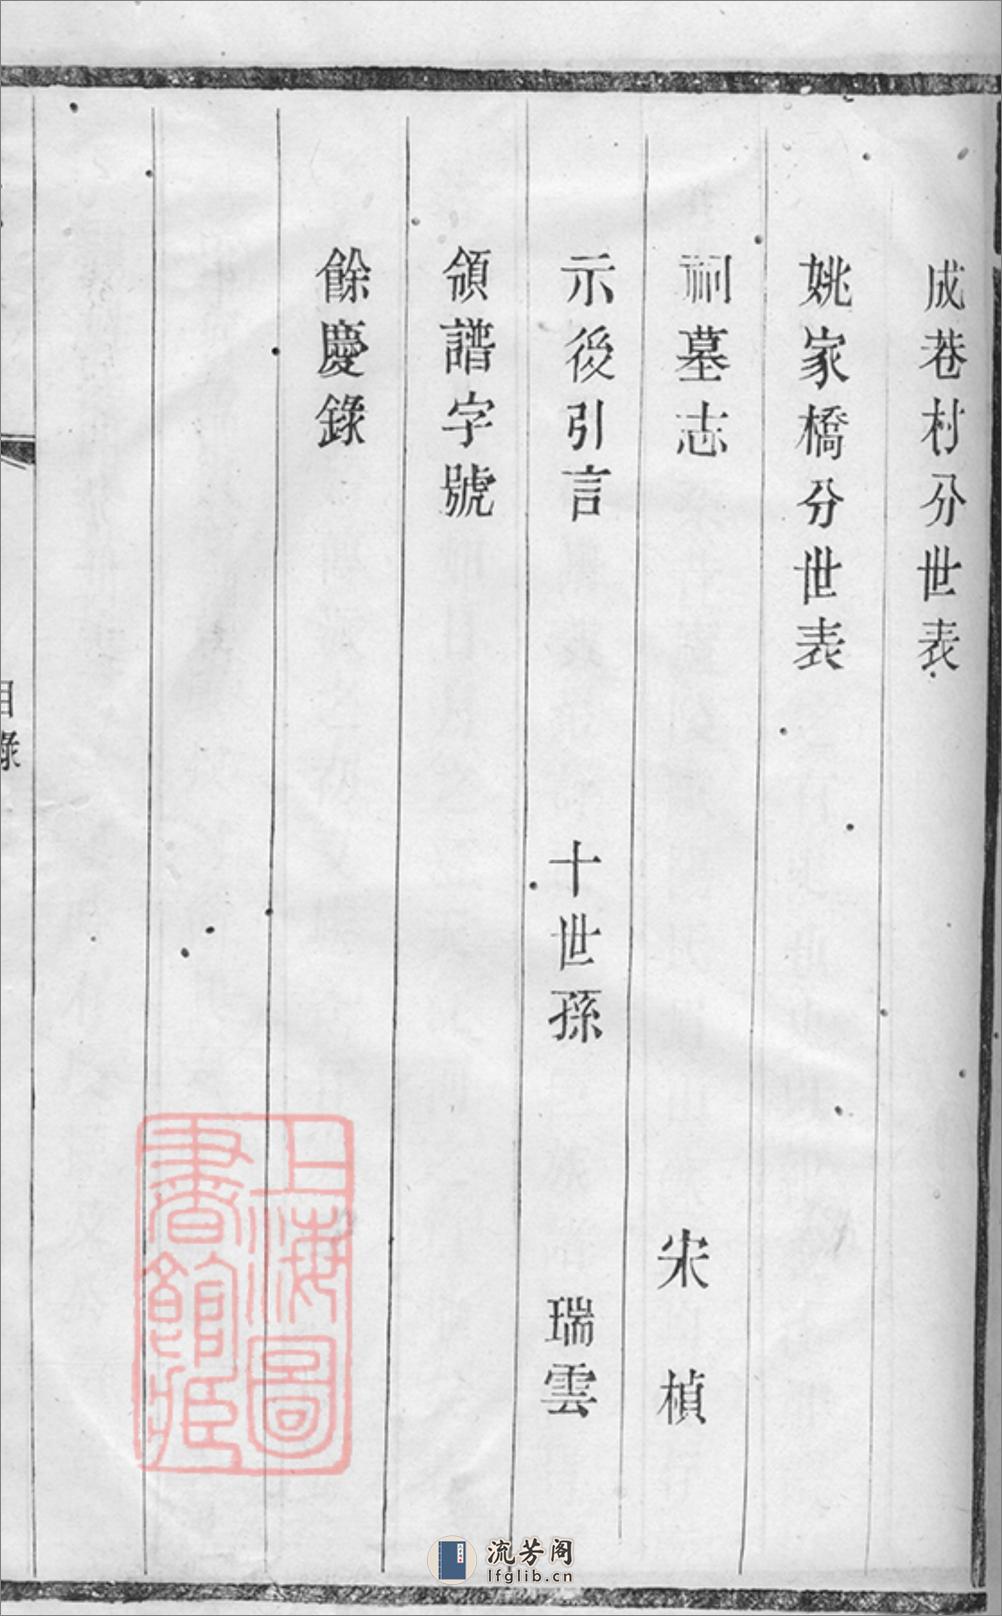 成巷村分世表
姚家橋分世表
祠墓志 宋楨
示後引言 十世孫 瑞雲
領譜字號
餘慶錄
目錄
上海圖書館藏
流芳阁
lfglib.cn